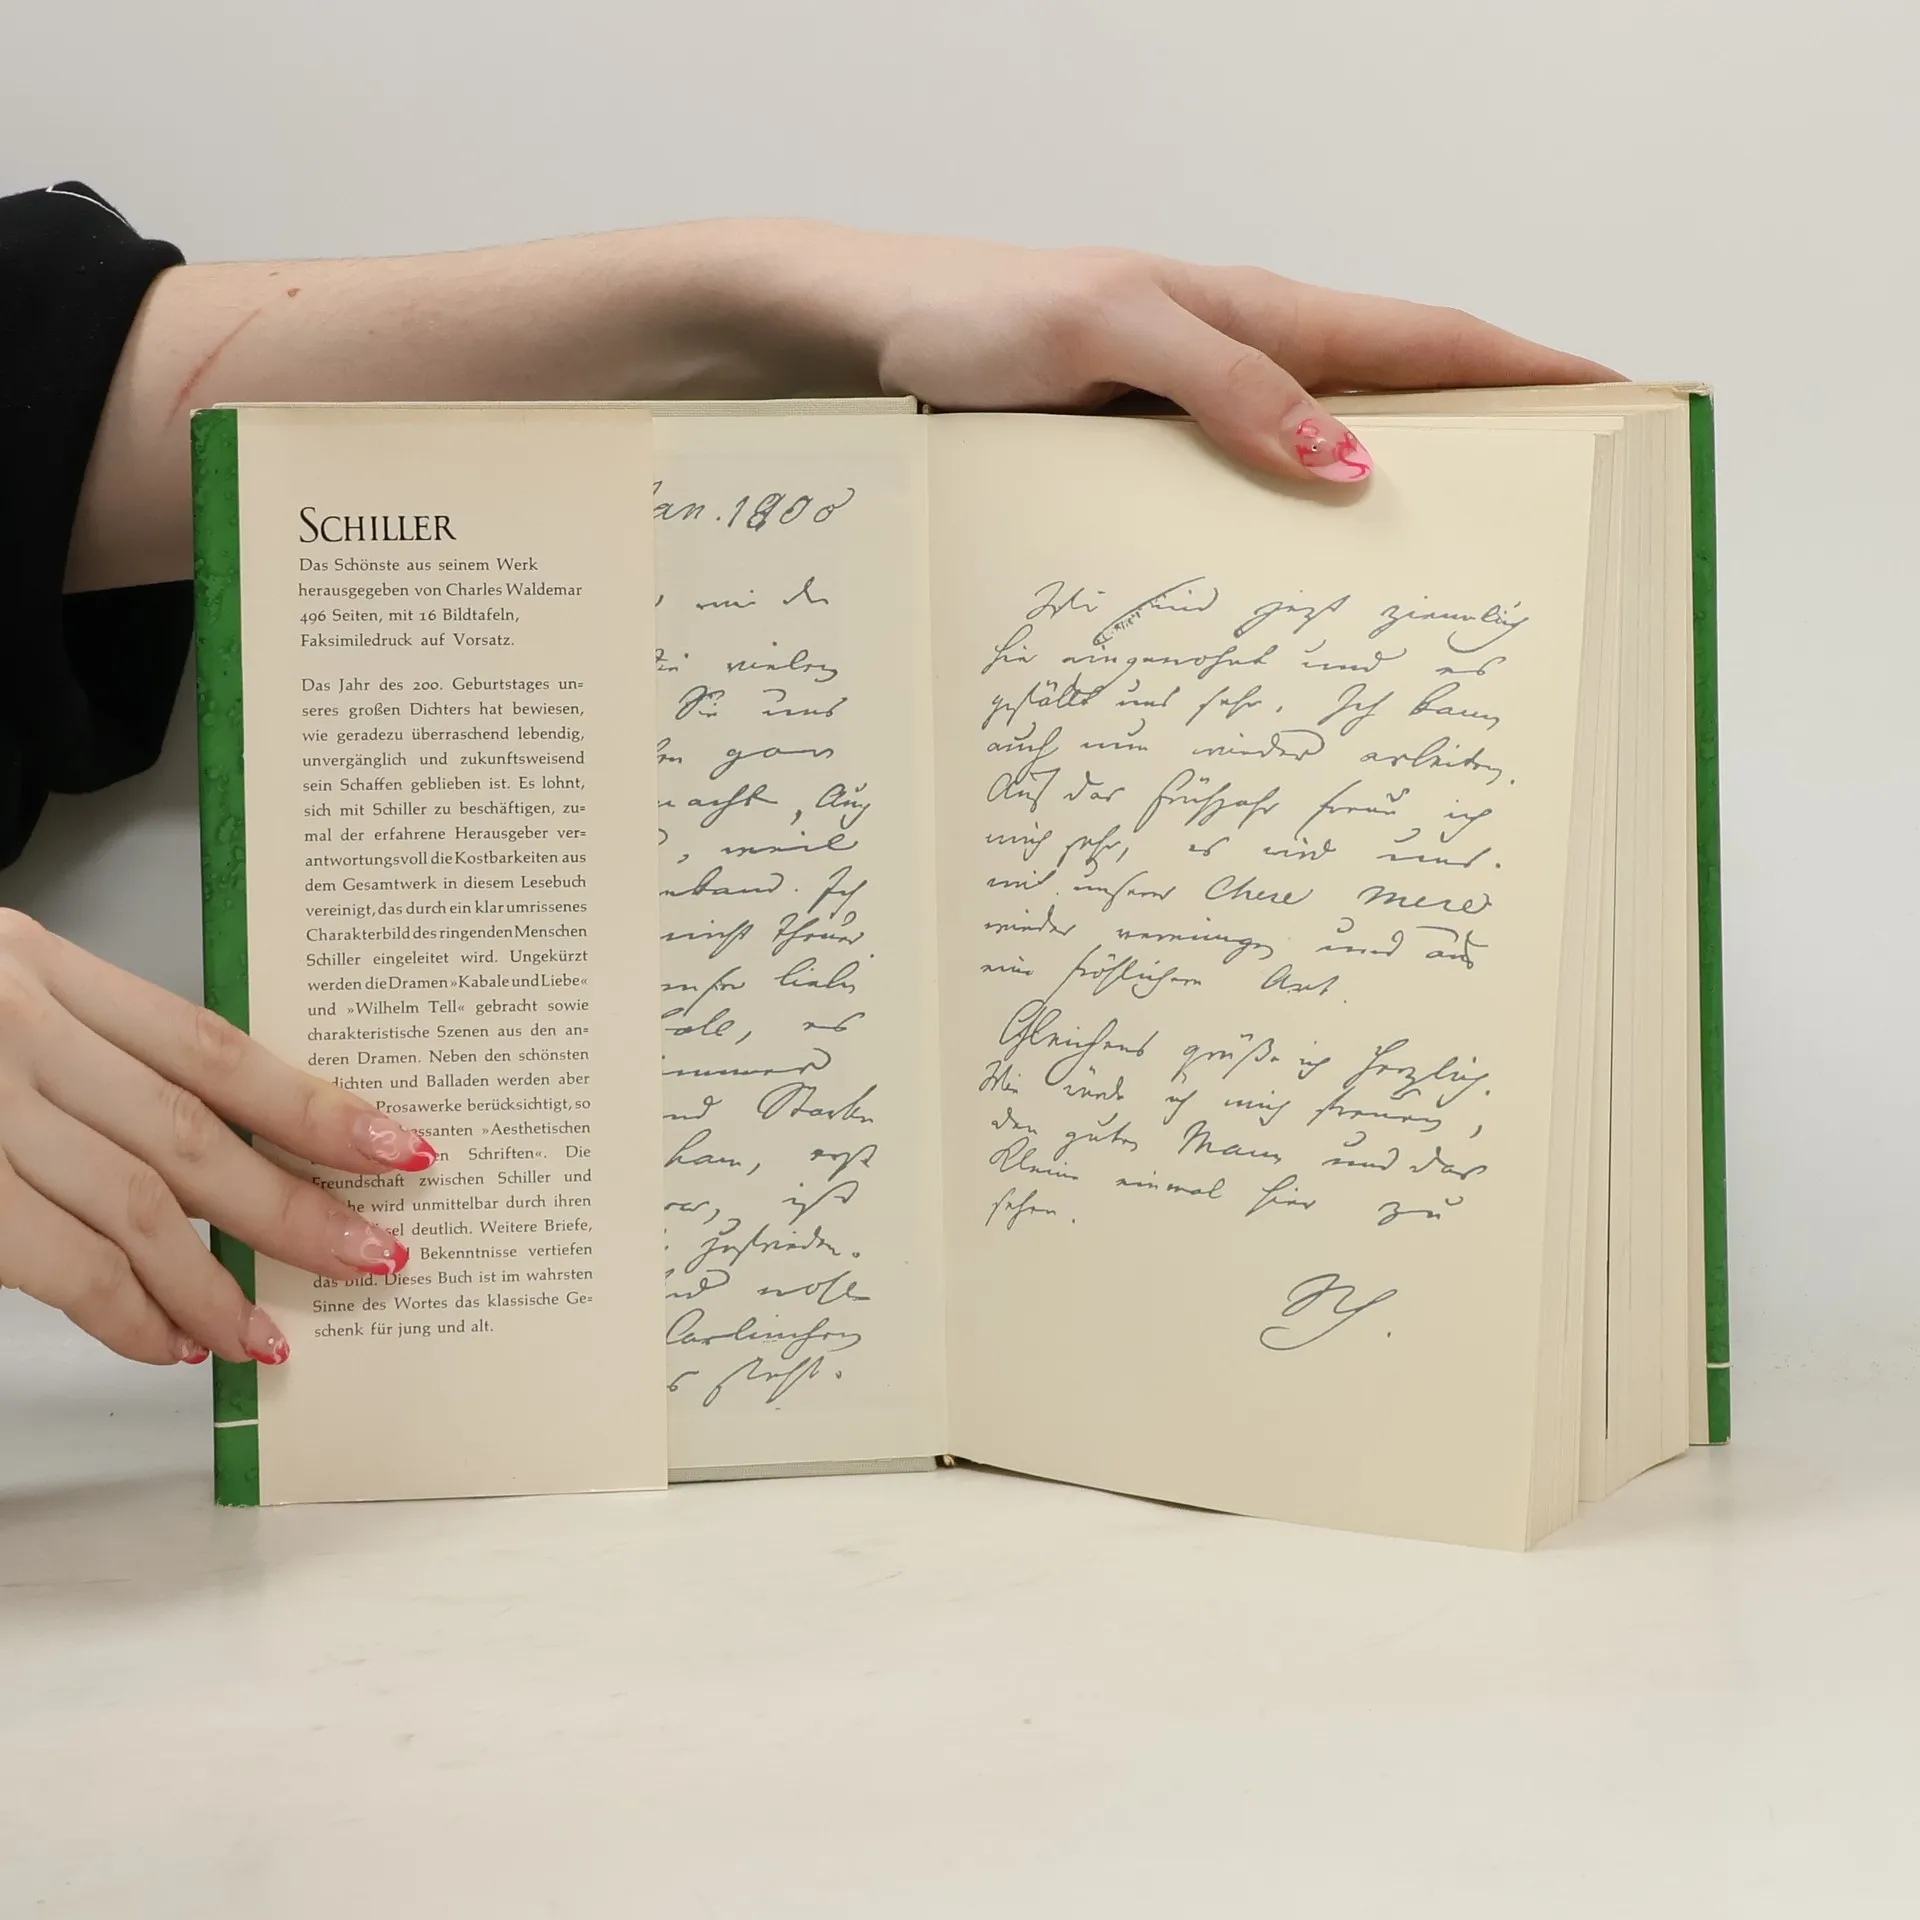 SCHILLER
Das Schönste aus seinem Werk
herausgegeben von Charles Waldemar
496 Seiten, mit 16 Bildtafeln,
Faksimiledruck auf Vorsatz.
Das Jahr des 200. Geburtstages un=
seres großen Dichters hat bewiesen,
wie geradezu überraschend lebendig,
unvergänglich und zukunftsweisend
sein Schaffen geblieben ist. Es lohnt,
sich mit Schiller zu beschäftigen, zu=
mal der erfahrene Herausgeber ver=
antwortungsvoll die Kostbarkeiten aus
dem Gesamtwerk in diesem Lesebuch
vereinigt, das durch ein klar umrissenes
Charakterbild des ringenden Menschen
Schiller eingeleitet wird. Ungekürzt
werden die Dramen »Kabale und Liebe«
und »Wilhelm Tell« gebracht sowie
charakteristische Szenen aus den an=
deren Dramen. Neben den schönsten
dichten und Balladen werden aber
Prosawerke berücksichtigt, so
essanten »Aesthetischen
en Schriften«. Die
Freundschaft zwischen Schiller und
he wird unmittelbar durch ihren
sel deutlich. Weitere Briefe,
Bekenntnisse vertiefen
das Bild. Dieses Buch ist im wahrsten
Sinne des Wortes das klassische Ge=
schenk für jung und alt.
Jan. 1800
wie der
vielen
Sie uns
gar
macht, Auch
, weil
Ich
nicht
liebe
, es
immer
und Starke
, erst
, ist
zufrieden.
und wohl
Carlinchen
steht.
Wir sind jezt ziemlich
hier eingewohnt und es
gefällt uns sehr. Ich kann
auch nun wieder arbeiten.
Auf das Frühjahr freue ich
mich sehr, es wird uns
mit unserer Chere mere
wieder vereinigen und auf
eine fröhlichere Art.
Gleichens grüße ich herzlich.
Wie würde ich mich freuen,
den guten Mann und das
Kleine einmal hier zu
sehen.